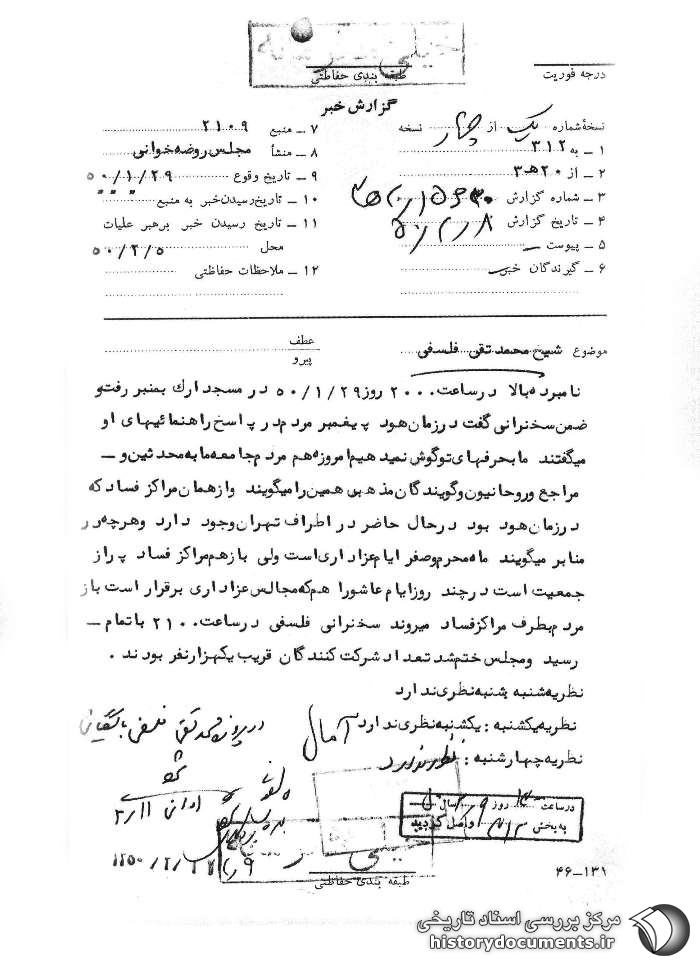 خیلی محرمانه
طبقه بندی حفاظتی
درجه فوریت
گزارش خبر
نسخه شماره یک از چهار نسخه
۱ ـ به ۳۱۲
۲ ـ از ۲۰هـ۳
۳ ـ شماره گزارش
۴ ـ تاریخ گزارش
۵ ـ پیوست ـ
۶ ـ گیرندگان خبر
۷ ـ منبع ۲۱۰۹
۸ ـ منشأ مجلس روضه خوانی
۹ ـ تاریخ وقوع ۵۰/۱/۲۹
۱۰ ـ تاریخ رسیدن خبر به منبع
۱۱ ـ تاریخ رسیدن خبر برهبر عملیات
محل ۵۰/۲/۵
۱۲ ـ ملاحظات حفاظتی
موضوع شیخ محمد تقی فلسفی
عطف
پیرو
نامبرده بالا در ساعت ۲۰۰۰ روز ۵۰/۱/۲۹ در مسجد ارك بمنبر رفت و
ضمن سخنرانی گفت در زمان هود پیغمبر مردم در پاسخ راهنمائیهای او
میگفتند ما بحرفهای تو گوش نمیدهیم امروزه هم مردم جامعه ما به محدثین و ـ
مراجع و روحانیون و گویندگان مذهبی همین را میگویند و از همان مراکز فساد که
در زمان هود بود در حال حاضر در اطراف تهران وجود دارد و هرچه در
منابر میگویند ماه محرم و صفر ایام عزاداری است ولی باز هم مراکز فساد پر از
جمعیت است در چند روز ایام عاشورا هم که مجالس عزاداری برقرار است باز
مردم بطرف مراکز فساد میروند سخنرانی فلسفی در ساعت ۲۱۰۰ باتمام ـ
رسید و مجلس ختم شد تعداد شرکت کنندگان قریب یکهزار نفر بودند .
نظریه شنبه شنبه نظری ندارد
نظریه یکشنبه : یکشنبه نظری ندارد آمال
نظریه چهارشنبه : نظری ندارد
در پرونده محمد تقی فلسفی بایگانی
در ساعت روز سال
به بخش ۳۱۲ واصل گردید
خیلی محرمانه
طبقه بندی حفاظتی
۴۶-۱۳۱
مرکز بررسی اسناد تاریخی
historydocuments.ir